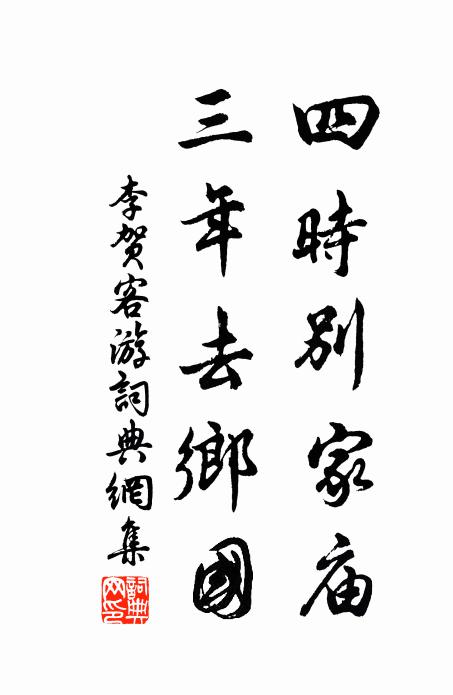 四時別家庙
三年去鄉國
李賀客游詞典網集
詞典網印